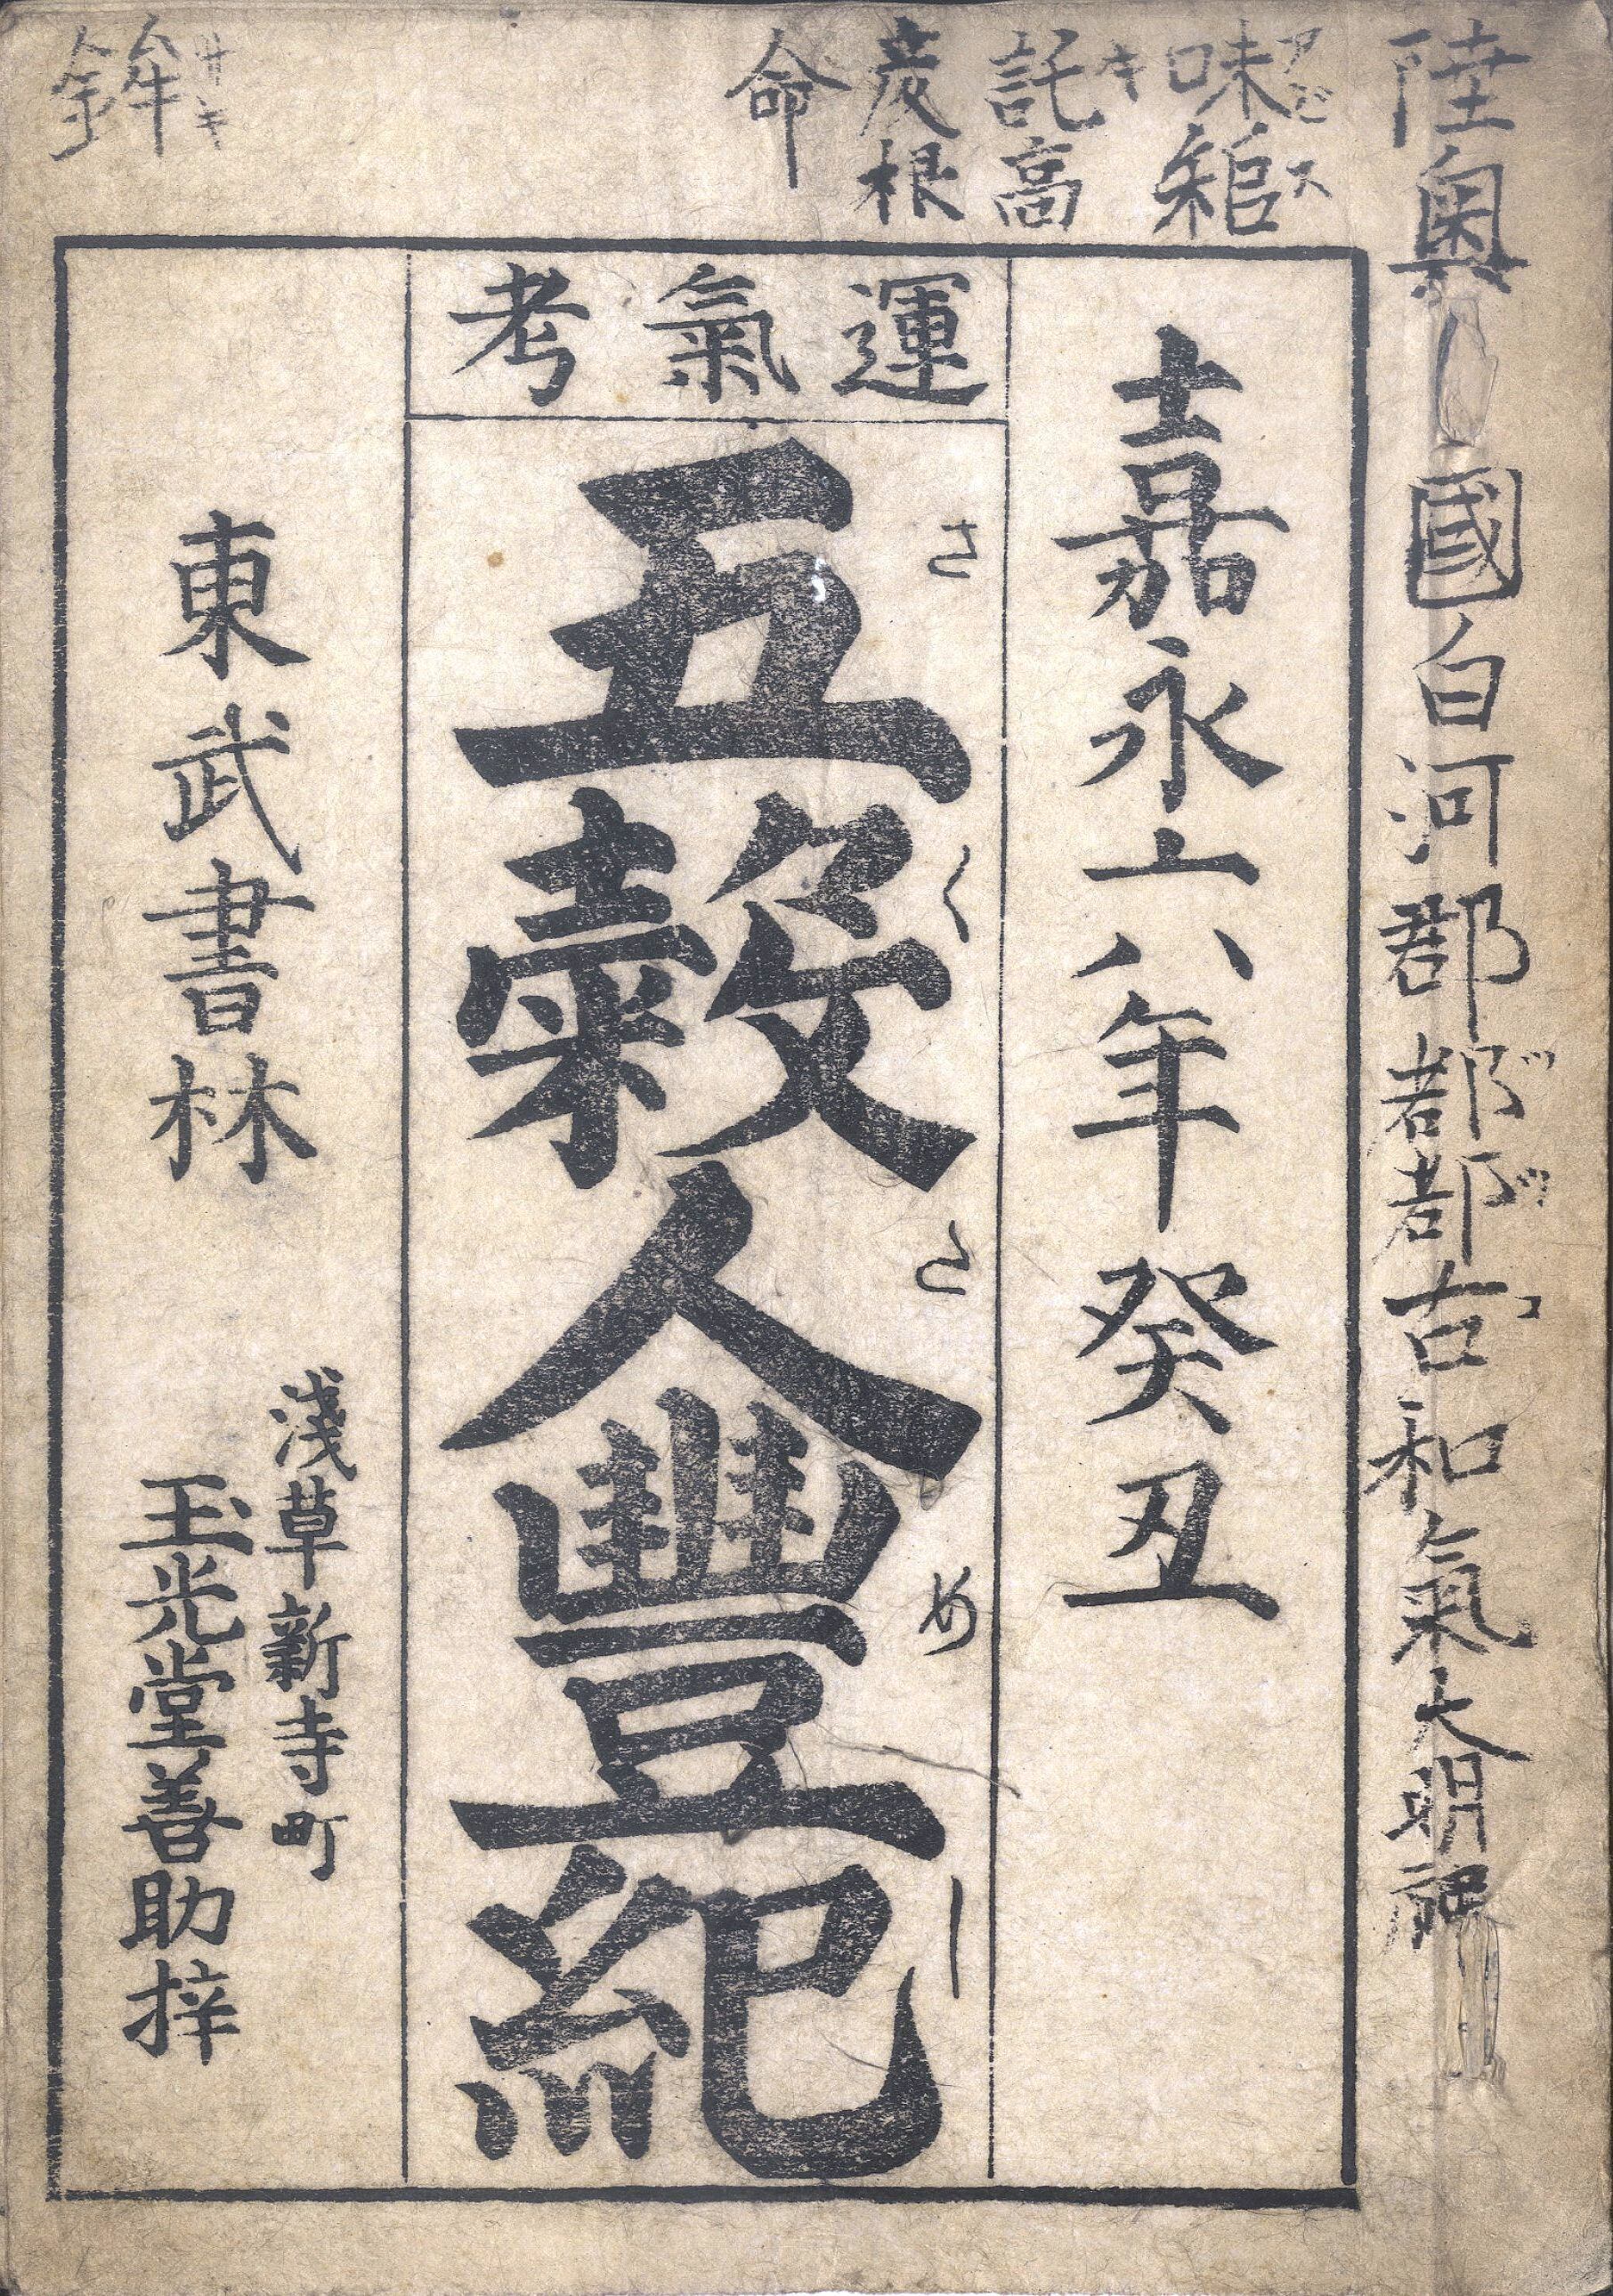 陸奥國白河郡都都古和氣大明神
味耜
託高
彦根
命
鉾
嘉永六年癸丑
運氣考
五穀人豐紀
さくためし
東武書林
淺草新寺町
玉光堂善助梓